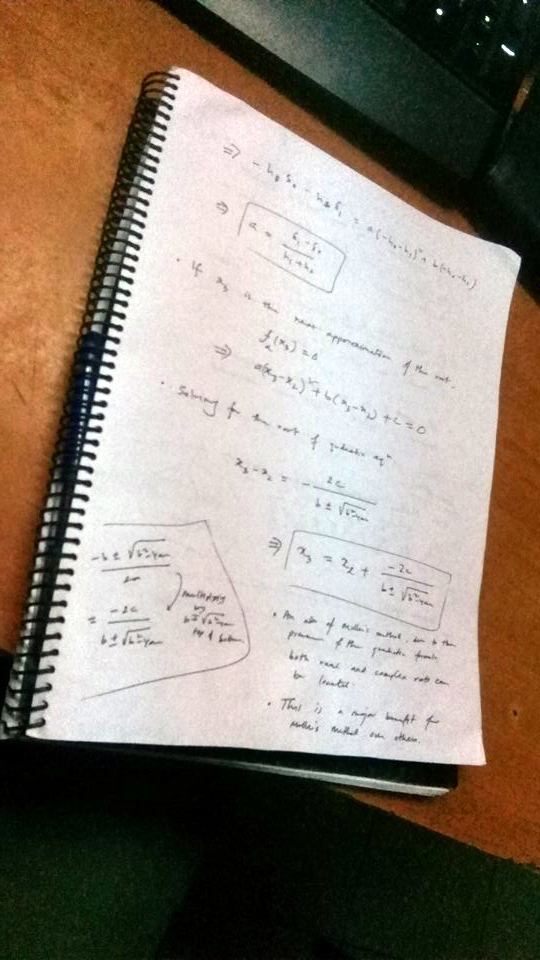 ⇒ - h₀δ₀ - h₁δ₁ = a(-h₀-h₁)² + b(-h₀-h₁)
⇒ a = δ₁-δ₀ / h₁+h₀
• If x₃ is the next approximation of the root.
f₂(x₃) = 0
⇒ a(x₃-x₂)² + b(x₃-x₂) + c = 0
• Solving for the root of quadratic eqⁿ
x₃-x₂ = - 2c / b ± √b²-4ac
⇒ x₃ = x₂ + -2c / b ± √b²-4ac
-b ± √b²-4ac / 2a
= -2c / b ± √b²-4ac
multiply
by
b ± √b²-4ac
top & bottom
• An adv of Muller's method, due to the
presence of the quadratic formula
both real and complex roots can
be located.
• This is a major benefit for
Muller's method over others.